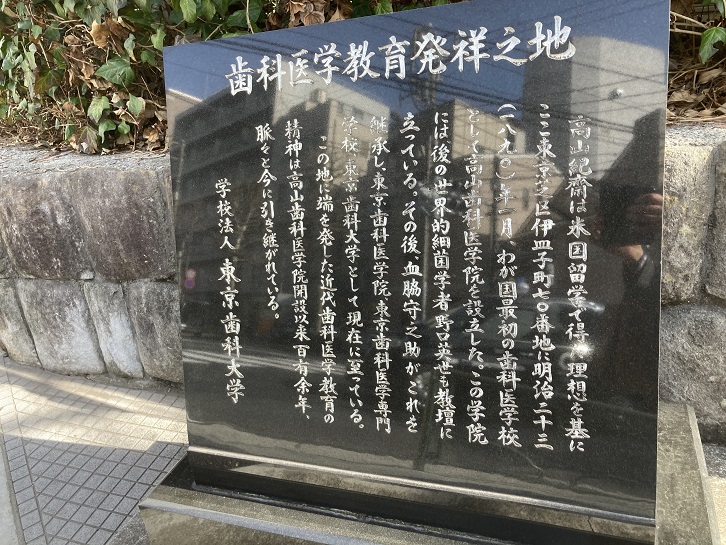 歯科医学教育発祥之地
高山紀齋は米国留学で得た理想を基に
ここ東京芝区伊皿子町七〇番地に明治二十三
(一八九〇)年一月、わが国最初の歯科医学校
として高山歯科医学院を設立した。この学院
には後の世界的細菌学者野口英世も教壇に
立っている。その後、血脇守之助がこれを
継承し東京歯科医学院、東京歯科医学専門
学校、東京歯科大学として現在に至っている。
この地に端を発した近代歯科医学教育の
精神は高山歯科医学院開設以来百有余年、
脈々と今に引き継がれている。
学校法人 東京歯科大学